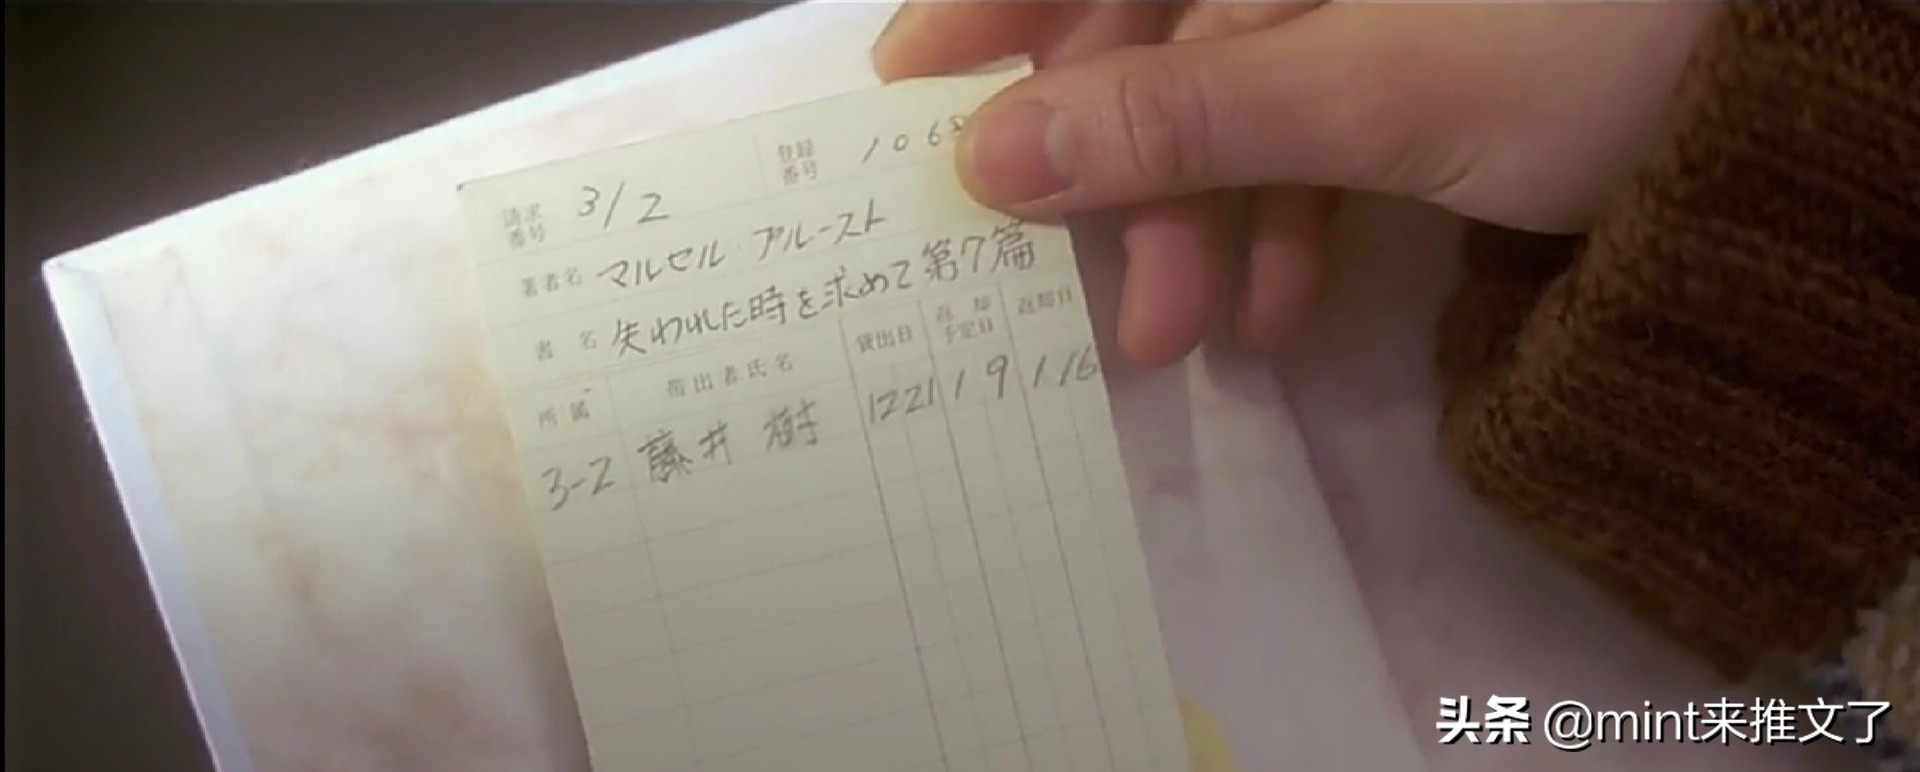 請求番号 3/2 登録番号 1068
著者名 マルセル・プルースト
書名 失われた時を求めて第7篇
所属 帯出者氏名 貸出日 返却予定日 返却日
3-2 藤井 樹 12 21 1 9 1 16
头条 @mint来推文了